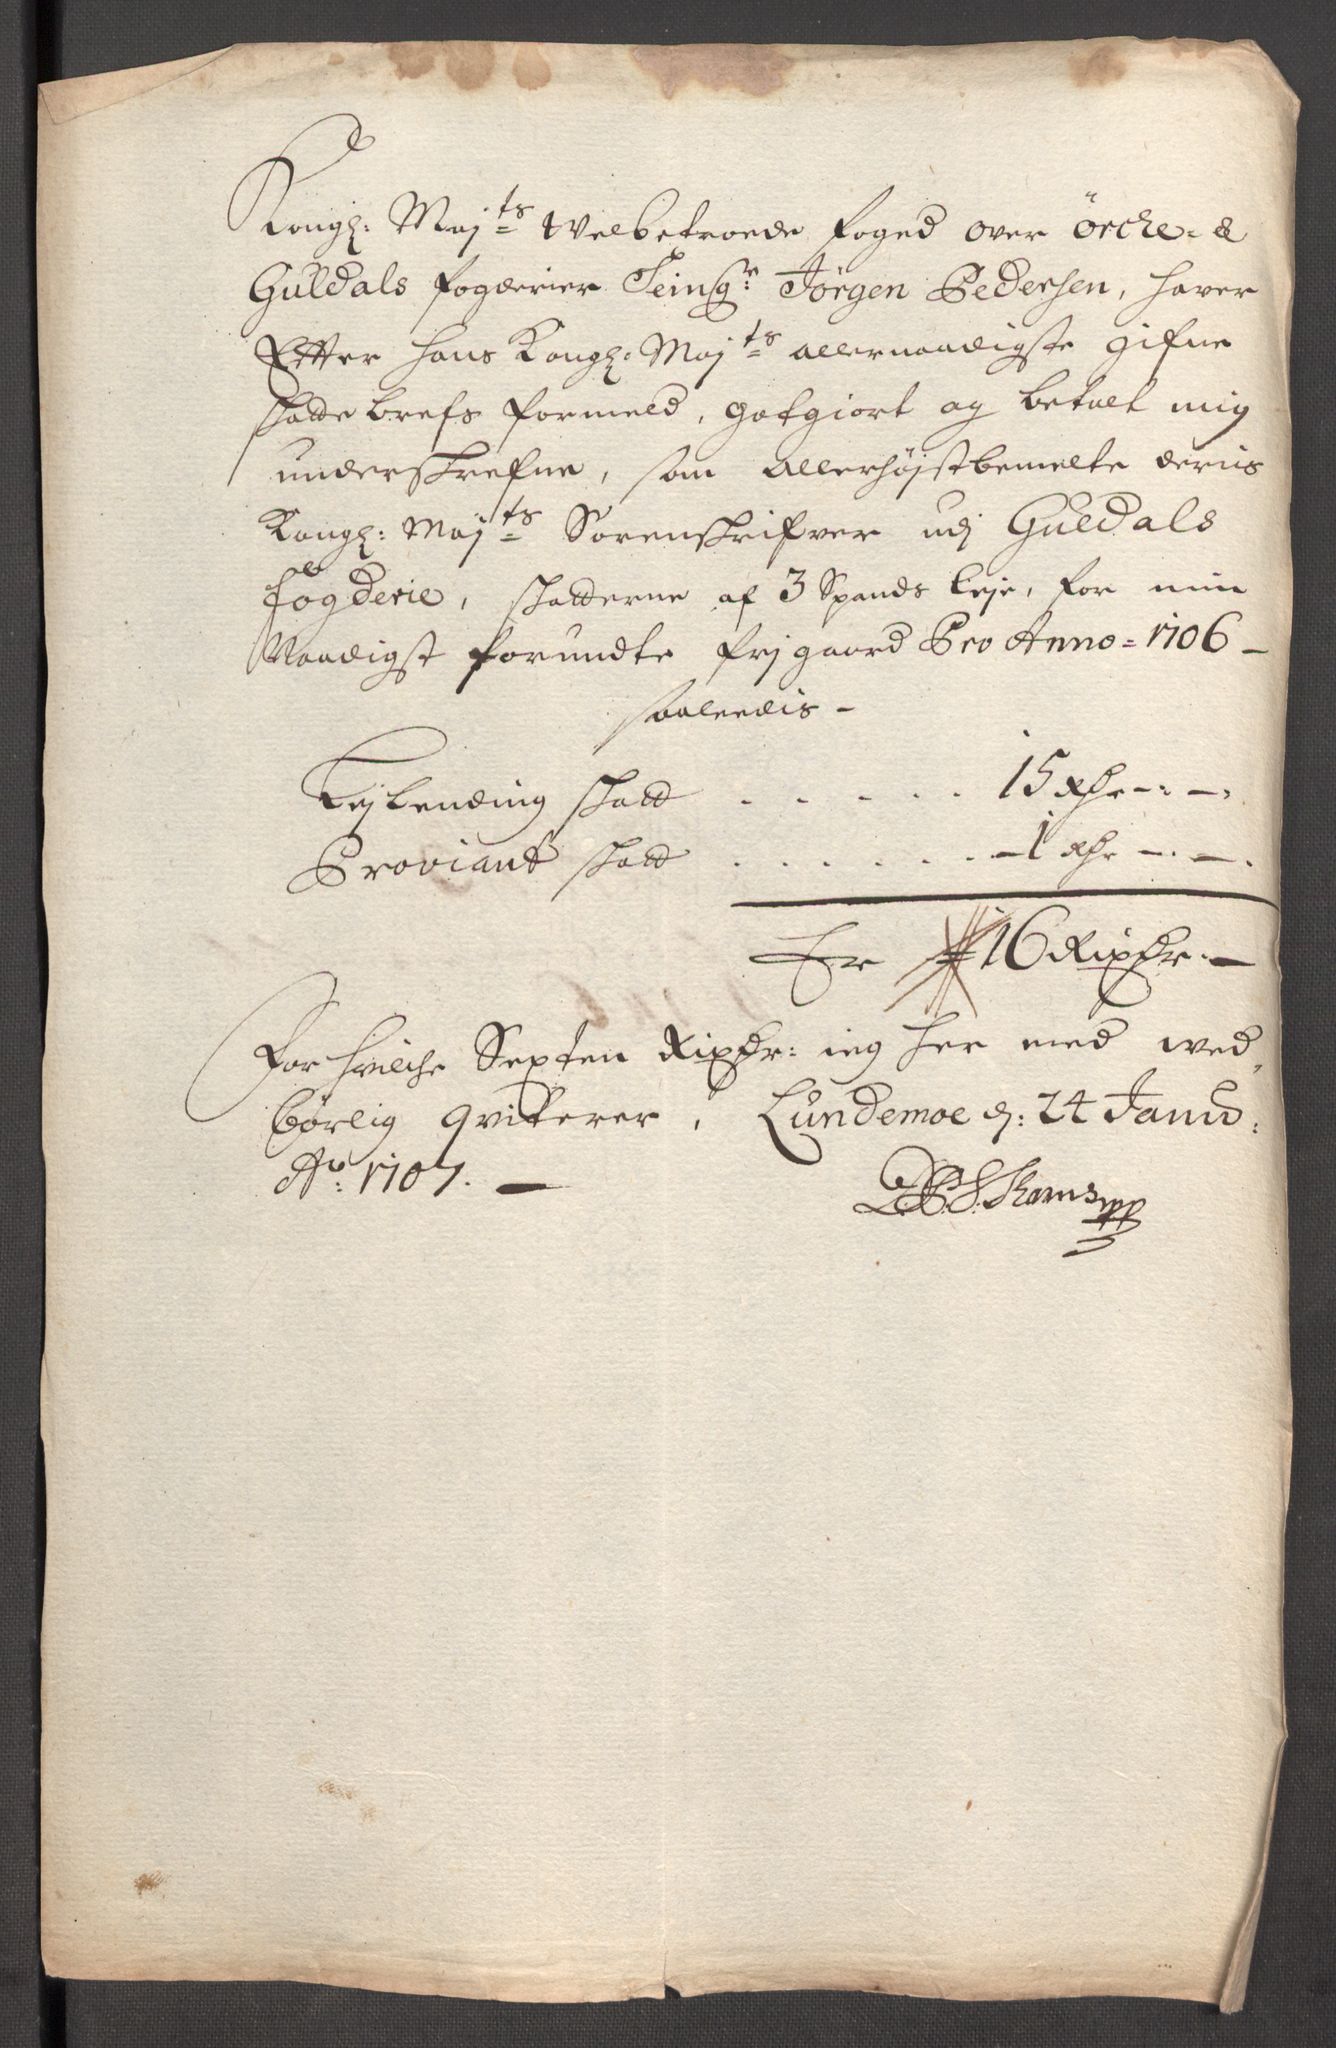 Kongl: Maj:ts Welbetroede foged over Örche- &
Guldals fogderier Seingr: Jörgen Pedersen, hafver
Effter hans Kongl: Maj:ts allernaadigste gifne
skatte brefs formeld, gotgiort og betalt mig
underskrefne, som allerhöjstbemelte deris
Kongl: Maj:ts Sorenskrifver udj Guldals
fögderie, skatterne af 3 Spands leje, for min
Naadigst forundte frj gaard Pro Anno = 1706 -
saaledis -
Lejlending skatt . . . . . . 15 Rdr -:-
Proviant skatt . . . . . . - 1 Rdr -:-
Er 16 Rixdr -
For hvilche Sexten Rixdr: ieg her med wed
börlig qviterer, Lundemoe d: 24 Janu:
Ao: 1707. -